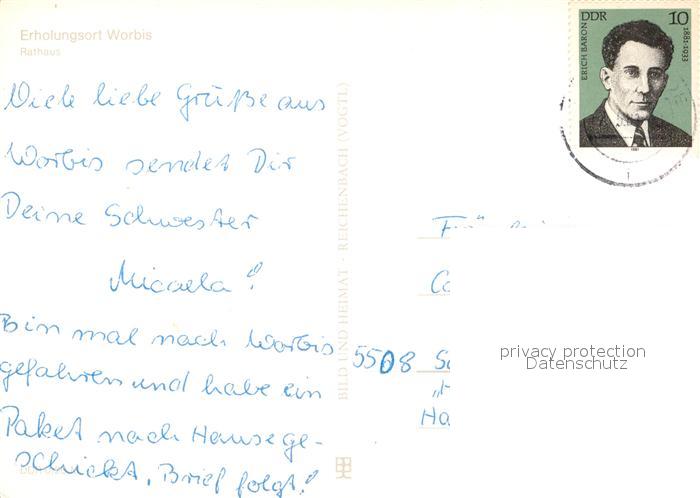 Erholungsort Worbis
Rathaus
Viele liebe Grüße aus
Worbis sendet Dir
Deine Schwester
Micaela!
Bin mal nach Worbis
gefahren und habe ein
Paket nach Hause ge-
schickt. Brief folgt!
BILD UND HEIMAT · REICHENBACH (VOGTL)
DDR 10
ERICH BARON 1881-1933
1981
5508
privacy protection
Datenschutz